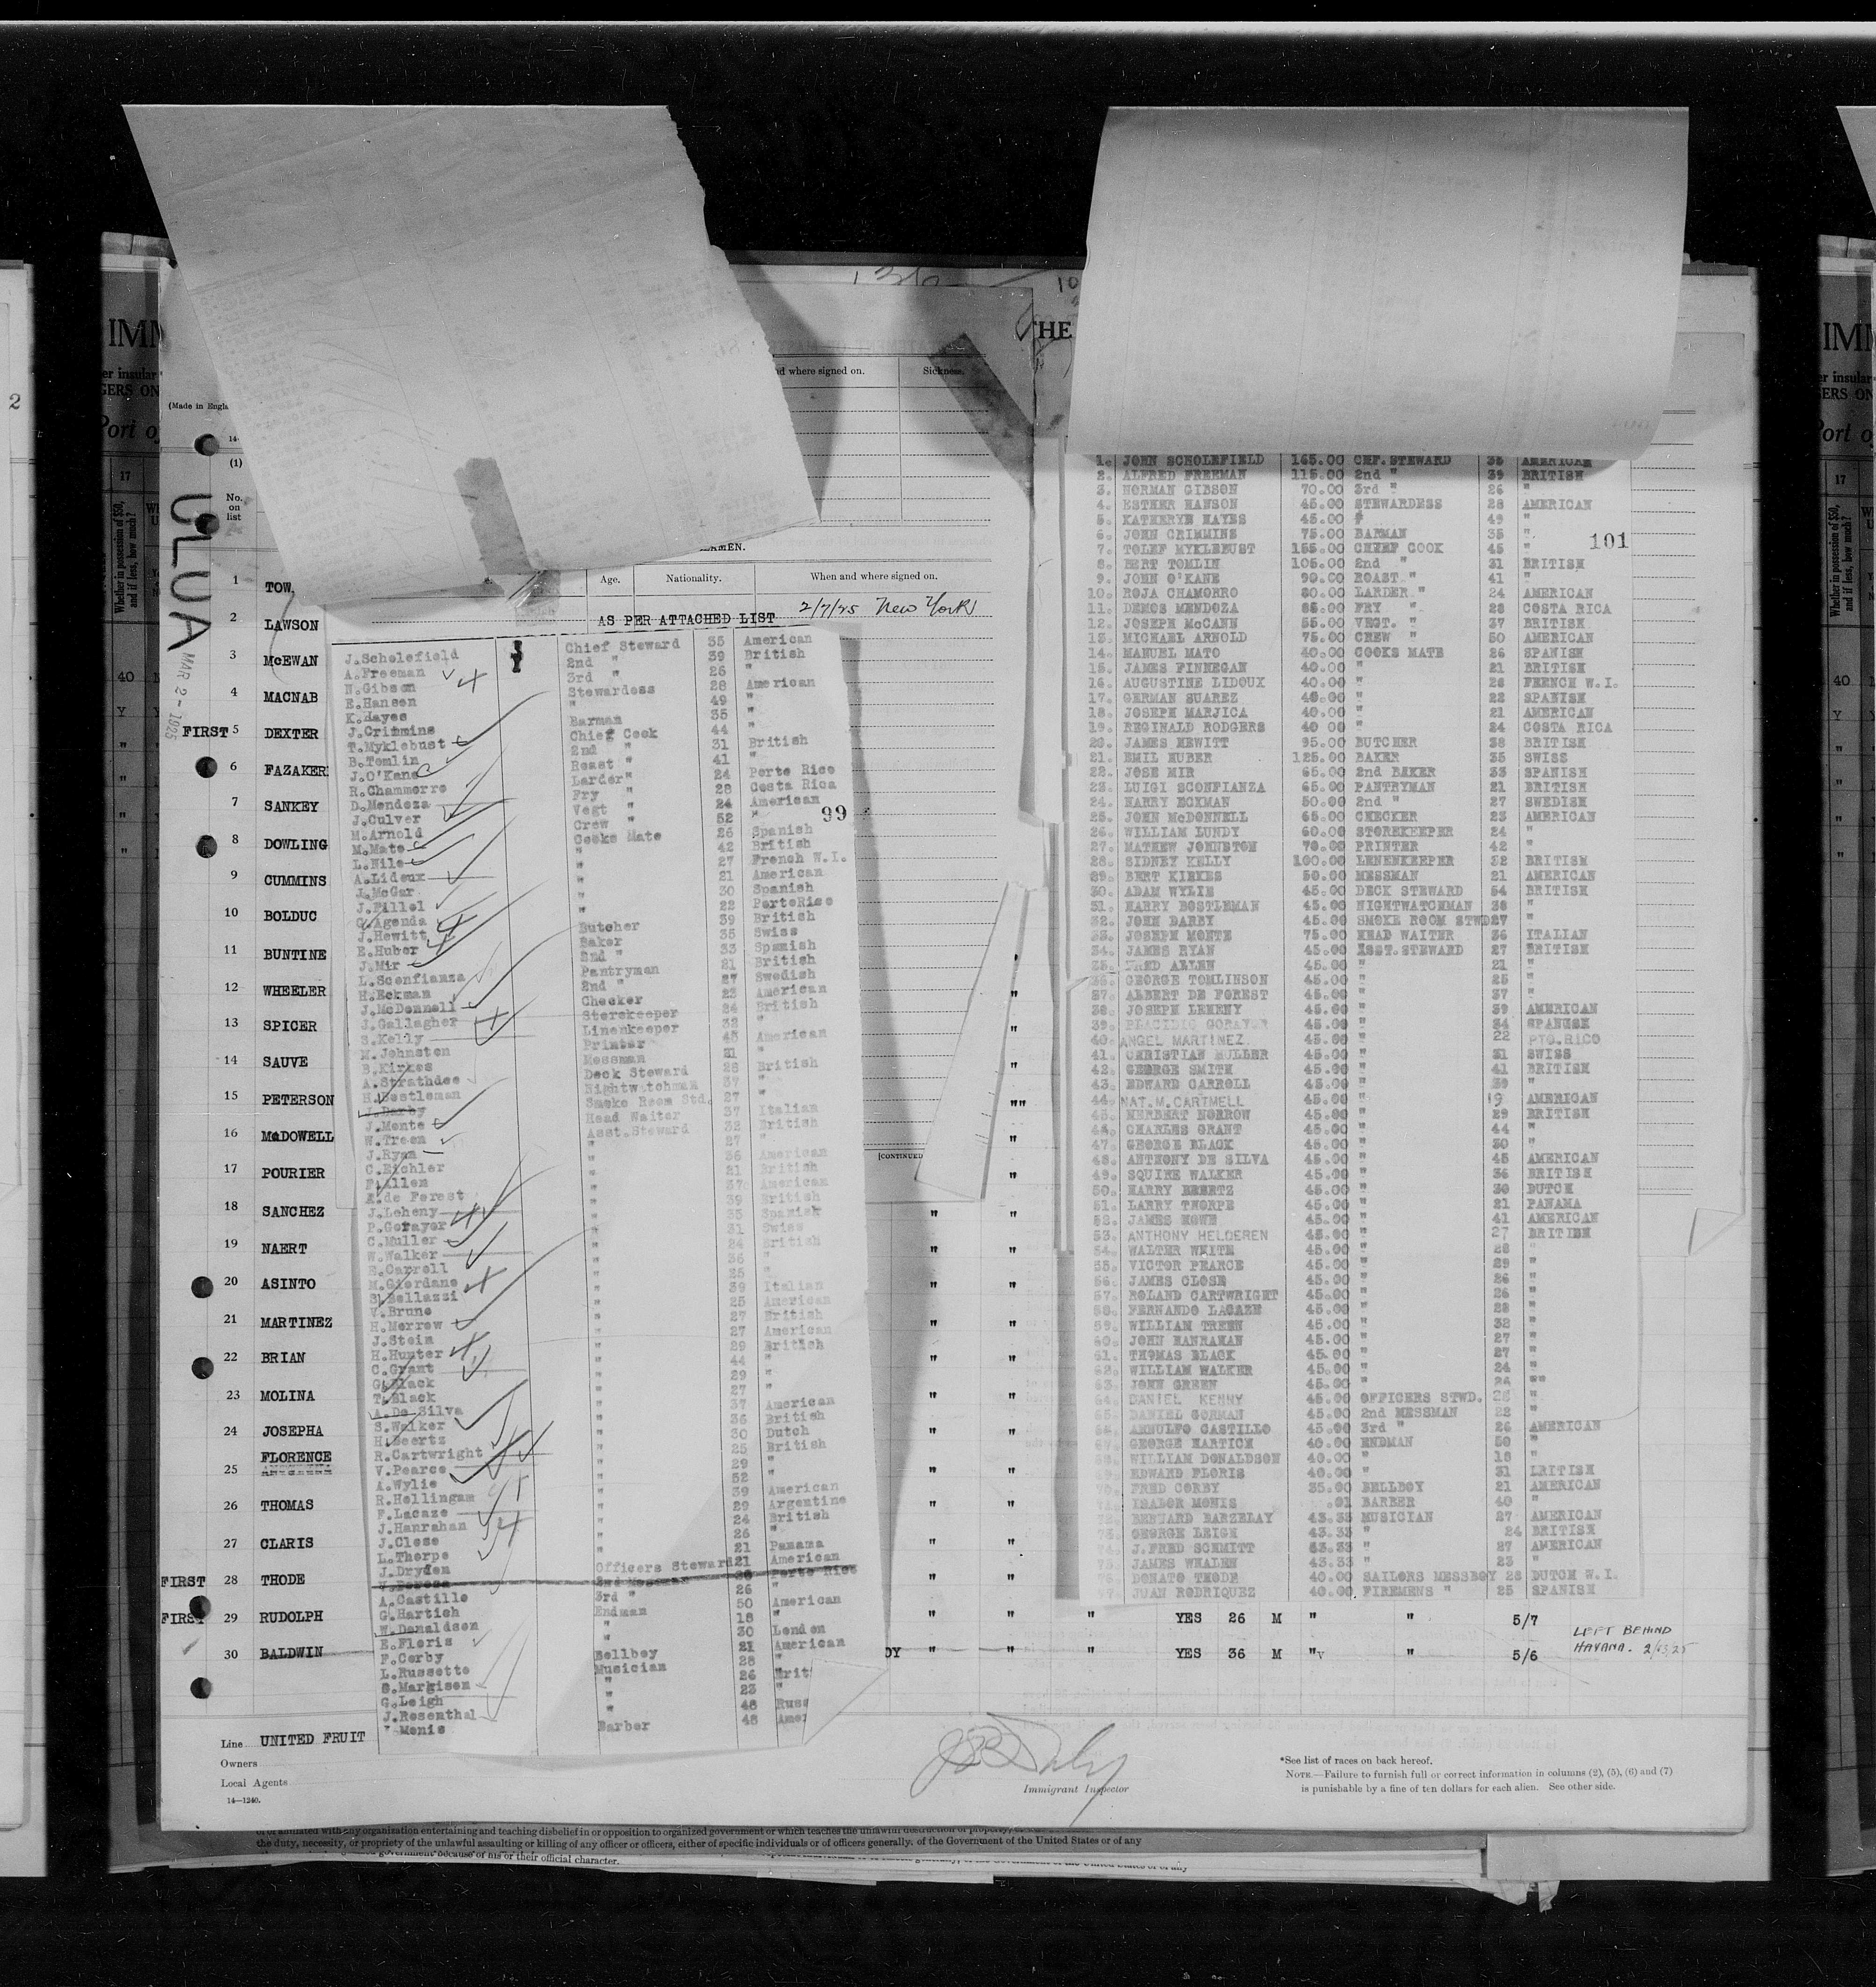 2
IMM
er insular
GERS ON
Port o
17
Whether in possession of $50, and if less, how much?
40
Y
(Made in Engla
14-
(1)
No. on list
ULUA
MAR 2 - 1925
HE
nd where signed on.
Sickness.
AMEN.
Age. Nationality. When and where signed on.
AS PER ATTACHED LIST 2/7/25 New York
1 TOW.
2 LAWSON
3 McEWAN
4 MACNAB
FIRST 5 DEXTER
6 FAZAKER
7 SANKEY
8 DOWLING
9 CUMMINS
10 BOLDUC
11 BUNTINE
12 WHEELER
13 SPICER
14 SAUVE
15 PETERSON
16 McDOWELL
17 POURIER
18 SANCHEZ
19 NAERT
20 ASINTO
21 MARTINEZ
22 BRIAN
23 MOLINA
24 JOSEPHA
FLORENCE
25
26 THOMAS
27 CLARIS
FIRST 28 THODE
FIRST 29 RUDOLPH " " " YES 26 M " " 5/7
30 BALDWIN DY " " " YES 36 M " " 5/6
LEFT BEHIND
HAVANA. 2/13/25
J.Scholefield Chief Steward 35 American
A.Freeman 2nd " 39 British
N.Gibson 3rd " 26 "
E.Hanson Stewardess 28 American
K.Hayes " 49 "
J.Crimmins Barman 35 "
T.Myklebust Chief Cook 44 "
B.Tomlin 2nd " 31 British
J.O'Kane Roast " 41 "
R.Chamorro Larder" 24 Porto Rico
D.Mendoza Fry " 28 Costa Rica
J.Culver Vegt " 24 American
M.Arnold Crew " 52 "
M.Mato Cooks Mate 26 Spanish
L.Nile " 42 British
A.Lidoux " 27 French W.I.
J.McGar " 21 American
J.Fillol " 30 Spanish
Agenda " 22 PortoRico
J.Hewitt Butcher 39 British
E.Huber Baker 35 Swiss
J.Mir 2nd " 33 Spanish
L.Sconfianza Pantryman 21 British
H.Eckman 2nd " 27 Swedish
J.McDonnell Checker 23 American
J.Gallagher Storekeeper 24 British
S.Kelly Linenkeeper 32 "
M.Johnston Printer 43 American
B.Kirkes Messman 21 "
A.Strathdee Deck Steward 28 British
H.Bostleman Nightwatchman 37 "
J.Darby Smoke Room Std. 27 "
J.Monte Head Waiter 37 Italian
W.Treen Asst.Steward 32 British
J.Ryan " 27 "
C.Eichler " 36 American
F.Allen " 21 British
A.de Forest " 37 American
J.Leheny " 39 British
P.Gorayor " 35 Spanish
C.Muller " 31 Swiss
W.Walker " 24 British
E.Carroll " 36 "
M.Giordano " 25 "
S.Bellazzi " 39 Italian
V.Bruno " 25 American
H.Morrow " 27 British
J.Stein " 27 American
H.Hunter " 29 British
C.Grant " 44 "
G.Black " 29 "
T.Black " 27 "
A.De Silva " 37 American
S.Walker " 36 British
H.Beertz " 30 Dutch
R.Cartwright " 25 British
V.Pearce " 29 "
A.Wylie " 52 "
R.Hollingam " 39 American
F.Lacaze " 29 Argentine
J.Hanrahan " 24 British
J.Close " 26 "
L.Thorpe " 21 Panama
J.Dryden Officers Steward 21 American
A.Castillo 3rd " 26 "
G.Hartich Endman 50 American
W.Donaldson " 18 "
E.Floris " 30 London
F.Corby Bellboy 21 American
L.Russotto Musician 28 "
S.Margison " 26 Brit
G.Leigh " 23 "
J.Rosenthal " 48 Russ
Monis Barber 48 Amer
99
[CONTINUED
101
1. JOHN SCHOLEFIELD 165.00 CHF.STEWARD 35 AMERICAN
2. ALFRED FREEMAN 115.00 2nd " 39 BRITISH
3. NORMAN GIBSON 70.00 3rd " 26 "
4. ESTHER HANSON 45.00 STEWARDESS 28 AMERICAN
5. KATHERYN HAYES 45.00 " 49 "
6. JOHN CRIMMINS 75.00 BARMAN 35 "
7. TOLEF MYKLEBUST 155.00 CHIEF COOK 45 "
8. BERT TOMLIN 105.00 2nd " 31 BRITISH
9. JOHN O'KANE 90.00 ROAST " 41 "
10. ROJA CHAMORRO 80.00 LARDER " 24 AMERICAN
11. DEMOS MENDOZA 55.00 FRY " 28 COSTA RICA
12. JOSEPH McCANN 55.00 VEGT. " 37 BRITISH
13. MICHAEL ARNOLD 75.00 CREW " 50 AMERICAN
14. MANUEL MATO 40.00 COOKS MATE 26 SPANISH
15. JAMES FINNEGAN 40.00 " 21 BRITISH
16. AUGUSTINE LIDOUX 40.00 " 28 FRENCH W.I.
17. GERMAN SUAREZ 40.00 " 22 SPANISH
18. JOSEPH MARJICA 40.00 " 21 AMERICAN
19. REGINALD RODGERS 40 00 " 24 COSTA RICA
20. JAMES HEWITT 95.00 BUTCHER 38 BRITISH
21. EMIL HUBER 125.00 BAKER 35 SWISS
22. JOSE MIR 65.00 2nd BAKER 33 SPANISH
23. LUIGI SCONFIANZA 65.00 PANTRYMAN 21 BRITISH
24. HARRY ECKMAN 50.00 2nd " 27 SWEDISH
25. JOHN McDONNELL 65.00 CHECKER 23 AMERICAN
26. WILLIAM LUNDY 60.00 STOREKEEPER 24 "
27. MATHEW JOHNSTON 70.00 PRINTER 42 "
28. SIDNEY KELLY 100.00 LENENKEEPER 32 BRITISH
29. BERT KIRKES 50.00 MESSMAN 21 AMERICAN
30. ADAM WYLIE 45.00 DECK STEWARD 54 BRITISH
31. HARRY BOSTLEMAN 45.00 NIGHTWATCHMAN 38 "
32. JOHN DARBY 45.00 SMOKE ROOM STWD 27 "
33. JOSEPH MONTE 75.00 HEAD WAITER 36 ITALIAN
34. JAMES RYAN 45.00 ASST.STEWARD 27 BRITISH
35. FRED ALLEN 45.00 " 21 "
36. GEORGE TOMLINSON 45.00 " 25 "
37. ALBERT DE FOREST 45.00 " 37 "
38. JOSEPH LEHENY 45.00 " 39 AMERICAN
39. PLACIDIO GORAYOR 45.00 " 34 SPANUSH
40. ANGEL MARTINEZ. 45.00 " 22 PTO.RICO
41. CHRISTIAN MULLER 45.00 " 31 SWISS
42. GEORGE SMITH 45.00 " 41 BRITISH
43. EDWARD CARROLL 45.00 " 39 "
44. NAT.M.CARTMELL 45.00 " 19 AMERICAN
45. HERBERT MORROW 45.00 " 29 BRITISH
46. CHARLES GRANT 45.00 " 44 "
47. GEORGE BLACK 45.00 " 30 "
48. ANTHONY DE SILVA 45.00 " 45 AMERICAN
49. SQUIRE WALKER 45.00 " 36 BRITISH
50. HARRY BEERTZ 45.00 " 30 DUTCH
51. LARRY THORPE 45.00 " 21 PANAMA
52. JAMES HOWE 45.00 " 41 AMERICAN
53. ANTHONY HELDEREN 45.00 " 27 BRITISH
54. WALTER WHITE 45.00 " 28 "
55. VICTOR PEARCE 45.00 " 29 "
56. JAMES CLOSE 45.00 " 26 "
57. ROLAND CARTWRIGHT 45.00 " 26 "
58. FERNANDO LACAZE 45.00 " 28 "
59. WILLIAM TREEN 45.00 " 32 "
60. JOHN HANRAHAN 45.00 " 27 "
61. THOMAS BLACK 45.00 " 27 "
62. WILLIAM WALKER 45.00 " 24 "
63. JOHN GREEN 45.00 " 26 "
64. DANIEL KENNY 45.00 OFFICERS STWD. 26 "
65. DANIEL GORMAN 45.00 2nd MESSMAN 22 "
66. ARNULFO CASTILLO 45.00 3rd " 26 AMERICAN
67. GEORGE HARTICH 40.00 ENDMAN 50 "
WILLIAM DONALDSON 40.00 " 18 "
EDWARD FLORIS 40.00 " 31 BRITISH
FRED CORBY 35.00 BELLBOY 21 AMERICAN
ISADOR MONIS .01 BARBER 40 "
BERNARD BARZELAY 43.33 MUSICIAN 27 AMERICAN
GEORGE LEIGH 43.33 " 24 BRITISH
J.FRED SCHMITT 63.33 " 27 AMERICAN
JAMES WHALEN 43.33 " 23 "
DONATO THODE 40.00 SAILORS MESSBOY 28 DUTCH W.I.
JUAN RODRIQUEZ 40.00 FIREMENS " 25 SPANISH
Line UNITED FRUIT
Owners
Local Agents
14—1240.
Immigrant Inspector
*See list of races on back hereof.
NOTE.—Failure to furnish full or correct information in columns (2), (5), (6) and (7)
is punishable by a fine of ten dollars for each alien. See other side.
or affiliated with any organization entertaining and teaching disbelief in or opposition to organized government or which teaches the unlawful destruction of property,
the duty, necessity, or propriety of the unlawful assaulting or killing of any officer or officers, either of specific individuals or of officers generally, of the Government of the United States or of any
government because of his or their official character.